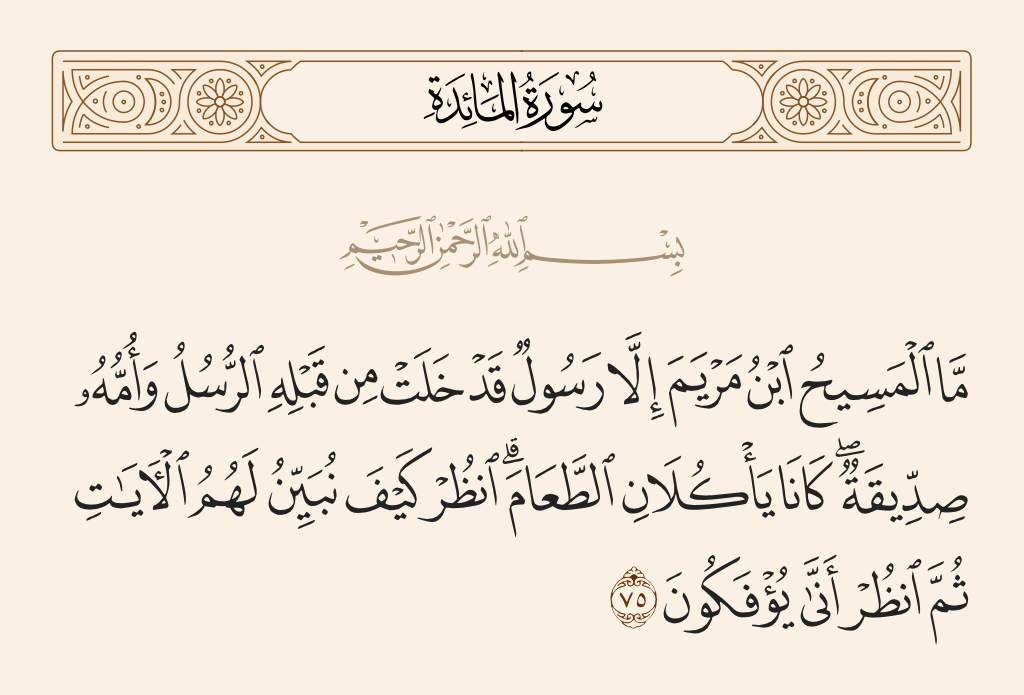 سُورَةُ المَائِدَةِ
بِسْمِ ٱللَّهِ ٱلرَّحْمَٰنِ ٱلرَّحِيمِ
مَّا ٱلْمَسِيحُ ٱبْنُ مَرْيَمَ إِلَّا رَسُولٌ قَدْ خَلَتْ مِن قَبْلِهِ ٱلرُّسُلُ وَأُمُّهُۥ
صِدِّيقَةٌ ۖ كَانَا يَأْكُلَانِ ٱلطَّعَامَ ۗ ٱنظُرْ كَيْفَ نُبَيِّنُ لَهُمُ ٱلْـَٔايَـٰتِ
ثُمَّ ٱنظُرْ أَنَّىٰ يُؤْفَكُونَ ٧٥